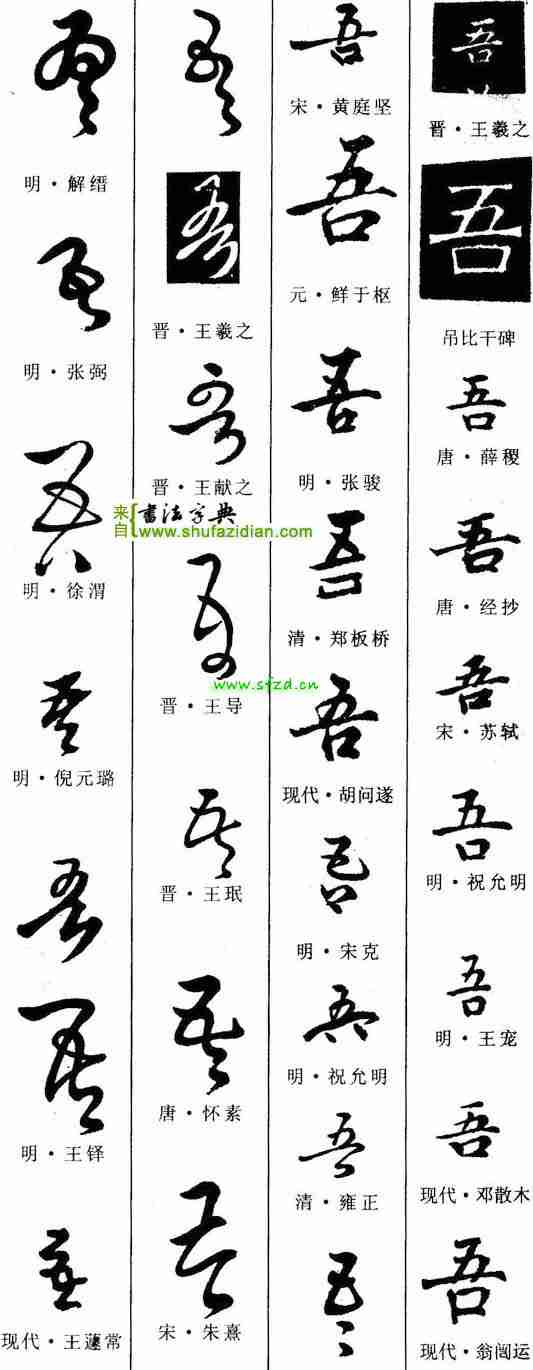 吾
晋·王羲之
吾
吊比干碑
吾
唐·薛稷
吾
唐·经抄
吾
宋·苏轼
吾
明·祝允明
吾
明·王宠
吾
现代·邓散木
吾
现代·翁闿运
吾
宋·黄庭坚
吾
元·鲜于枢
吾
明·张骏
吾
清·郑板桥
吾
现代·胡问遂
吾
明·宋克
吾
明·祝允明
吾
清·雍正
吾
吾
吾
晋·王羲之
吾
晋·王献之
吾
晋·王导
吾
晋·王珉
吾
唐·怀素
吾
宋·朱熹
吾
明·解缙
吾
明·张弼
吾
明·徐渭
吾
明·倪元璐
吾
吾
明·王铎
吾
现代·王蘧常
来自
书法字典
www.shufazidian.com
www.sfzd.cn